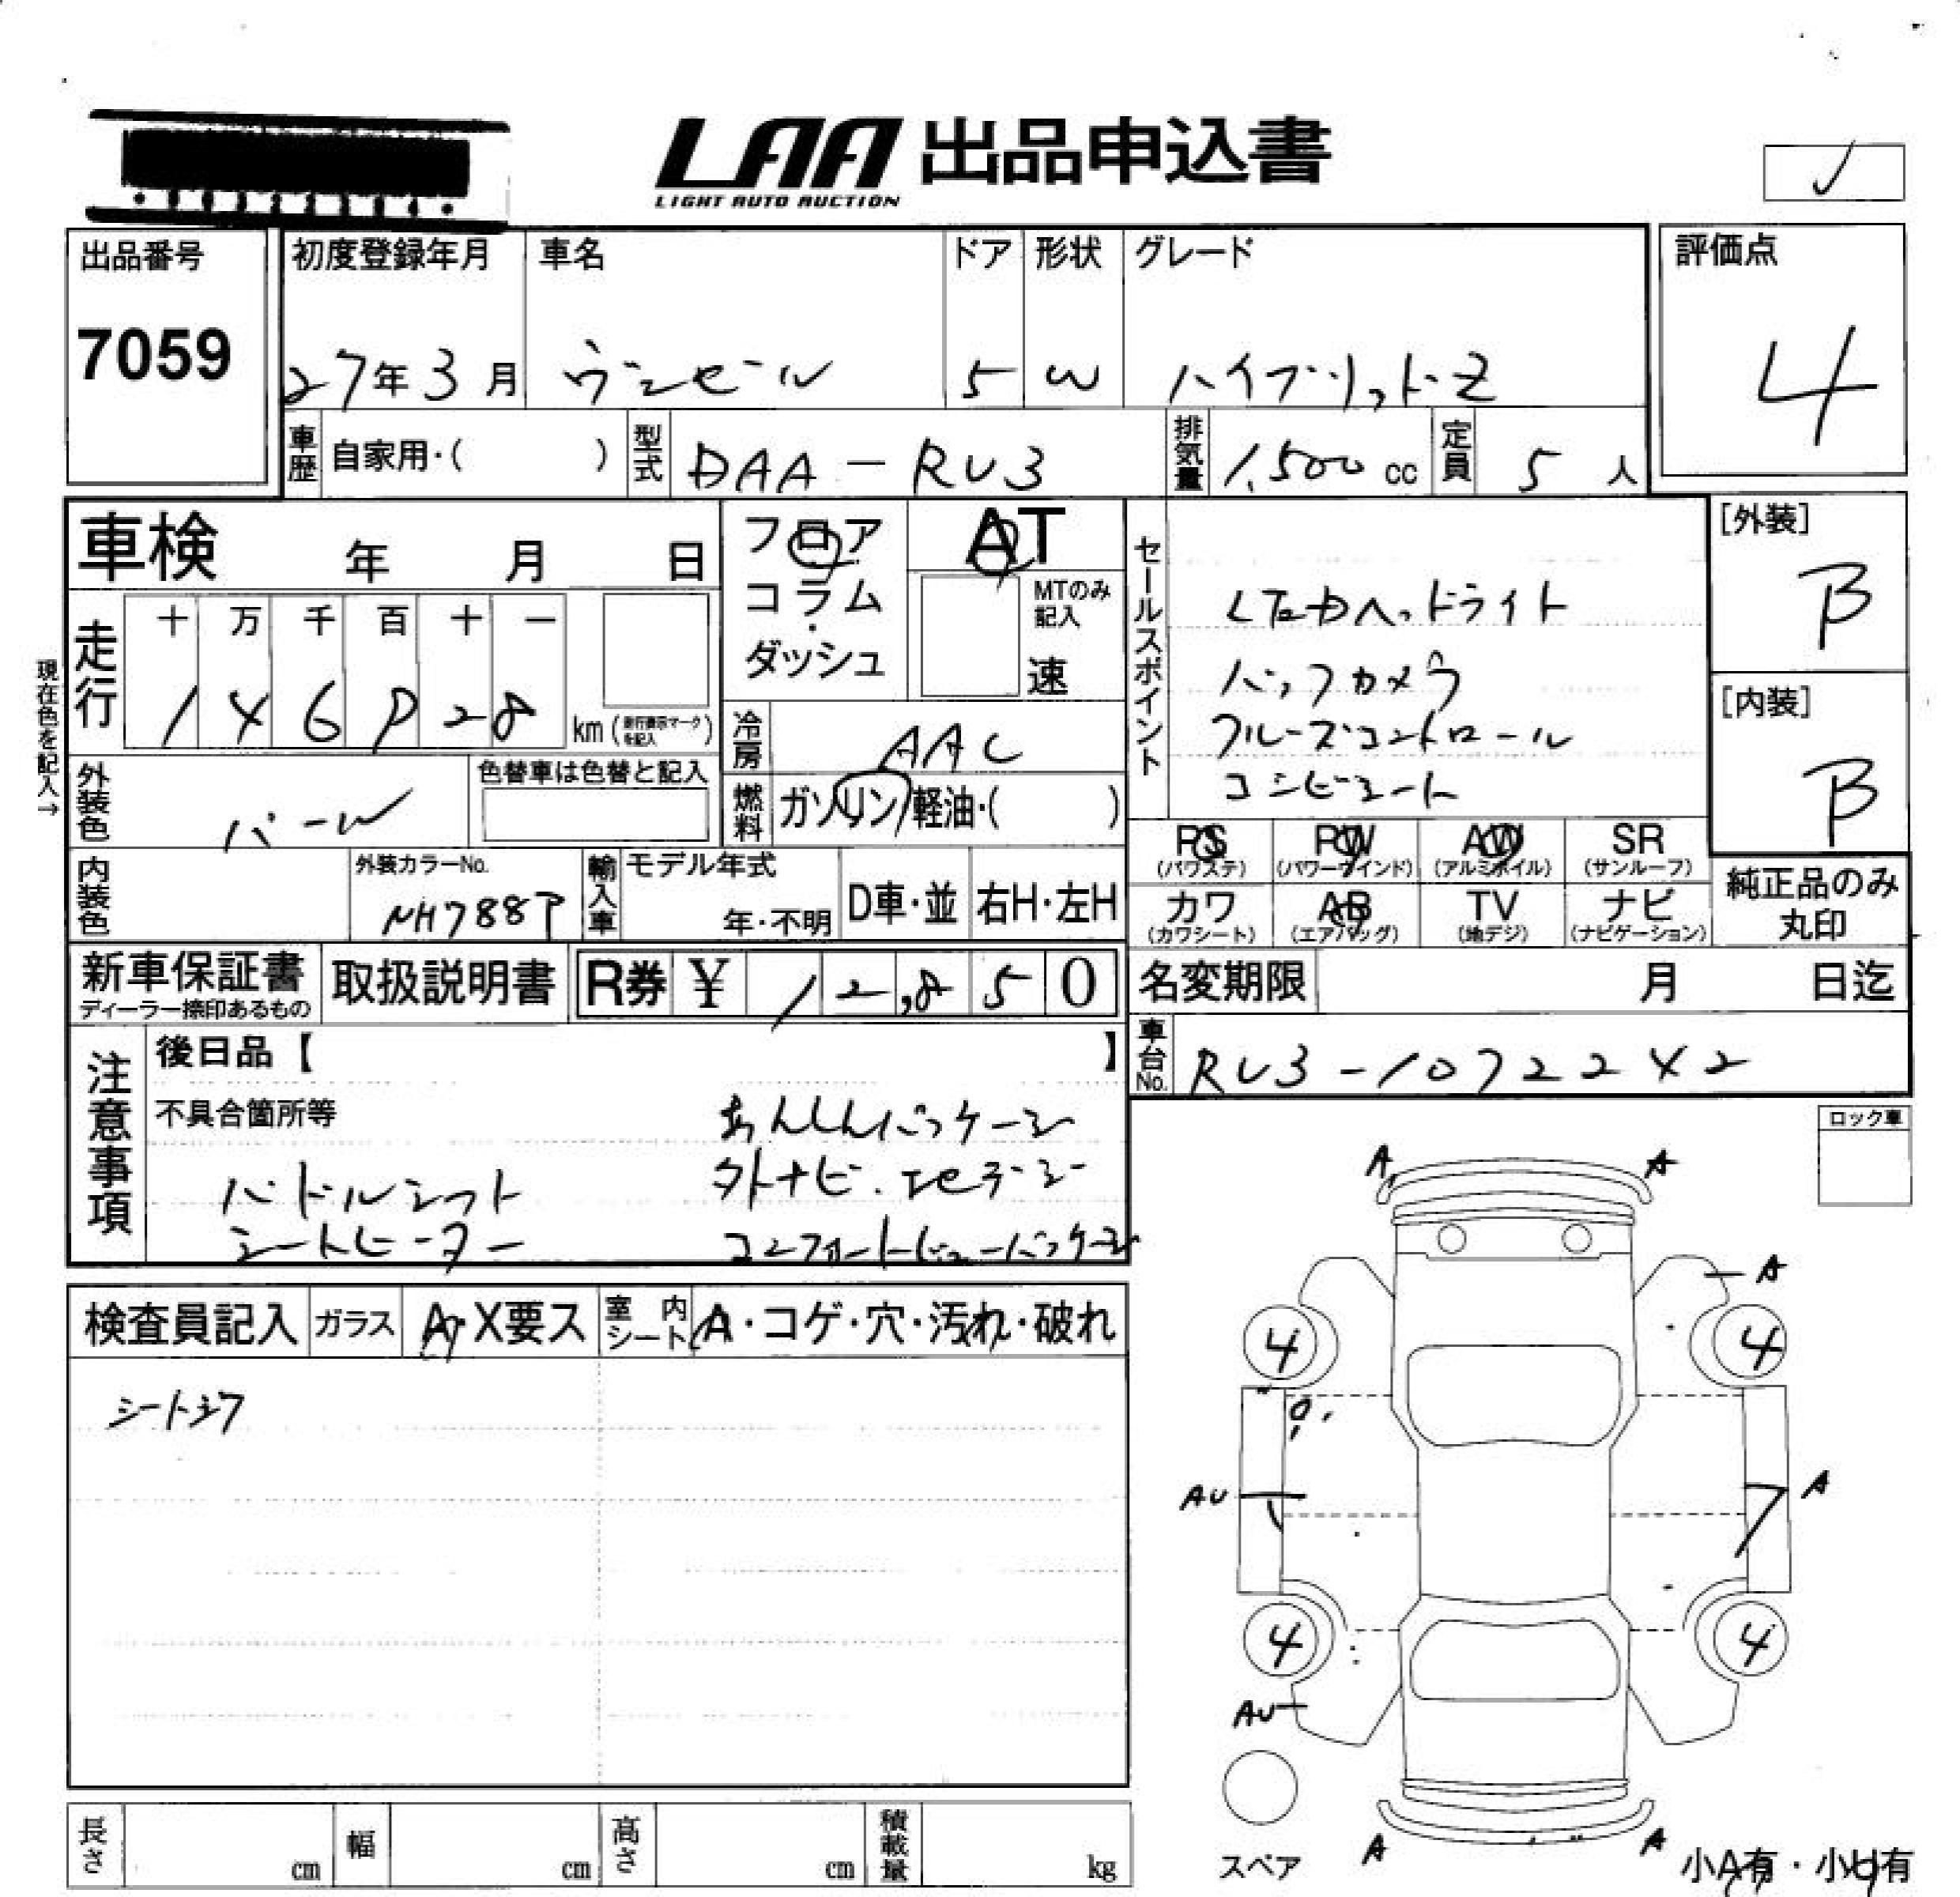 LAA 出品申込書
LIGHT AUTO AUCTION
出品番号
7059
初度登録年月
27年3月
車名
ヴェゼル
ドア
5
形状
W
グレード
ハイブリッドZ
評価点
4
車歴 自家用・( )
型式 DAA-RU3
排気量 1,500 cc
定員 5 人
車検 年 月 日
フロア
コラム
・
ダッシュ
AT
MTのみ
記入
速
セールスポイント
LEDヘッドライト
バックカメラ
クルーズコントロール
コンビシート
[外装]
B
[内装]
B
現在色を記入→
走行
十 万 千 百 十 一
1 4 6 9 2 8
km(走行表示マークを記入)
冷房 AAC
外装色 パール
色替車は色替と記入
燃料 ガソリン・軽油・( )
RS PW AW SR
(パワステ) (パワーウインド) (アルミホイル) (サンルーフ)
カワ AB TV ナビ
(カワシート) (エアバッグ) (地デジ) (ナビゲーション)
純正品のみ
丸印
内装色
外装カラーNo.
NH788P
輸入車
モデル年式
年・不明
D車・並
右H・左H
新車保証書
ディーラー捺印あるもの
取扱説明書
R券 ¥ 12,850
名変期限 月 日迄
車台No. RU3-1072242
注意事項
後日品【 】
不具合箇所等
あんしんパッケージ
外ナビ・TEデジ
パドルシフト
シートヒーター
コンフォートビューパッケージ
ロック車
検査員記入
ガラス A・X要ス
室内シート A・コゲ・穴・汚れ・破れ
A A
A
4 4
AU A
4 4
AU
スペア
A A
小A有・小U有
長さ cm
幅 cm
高さ cm
積載量 kg